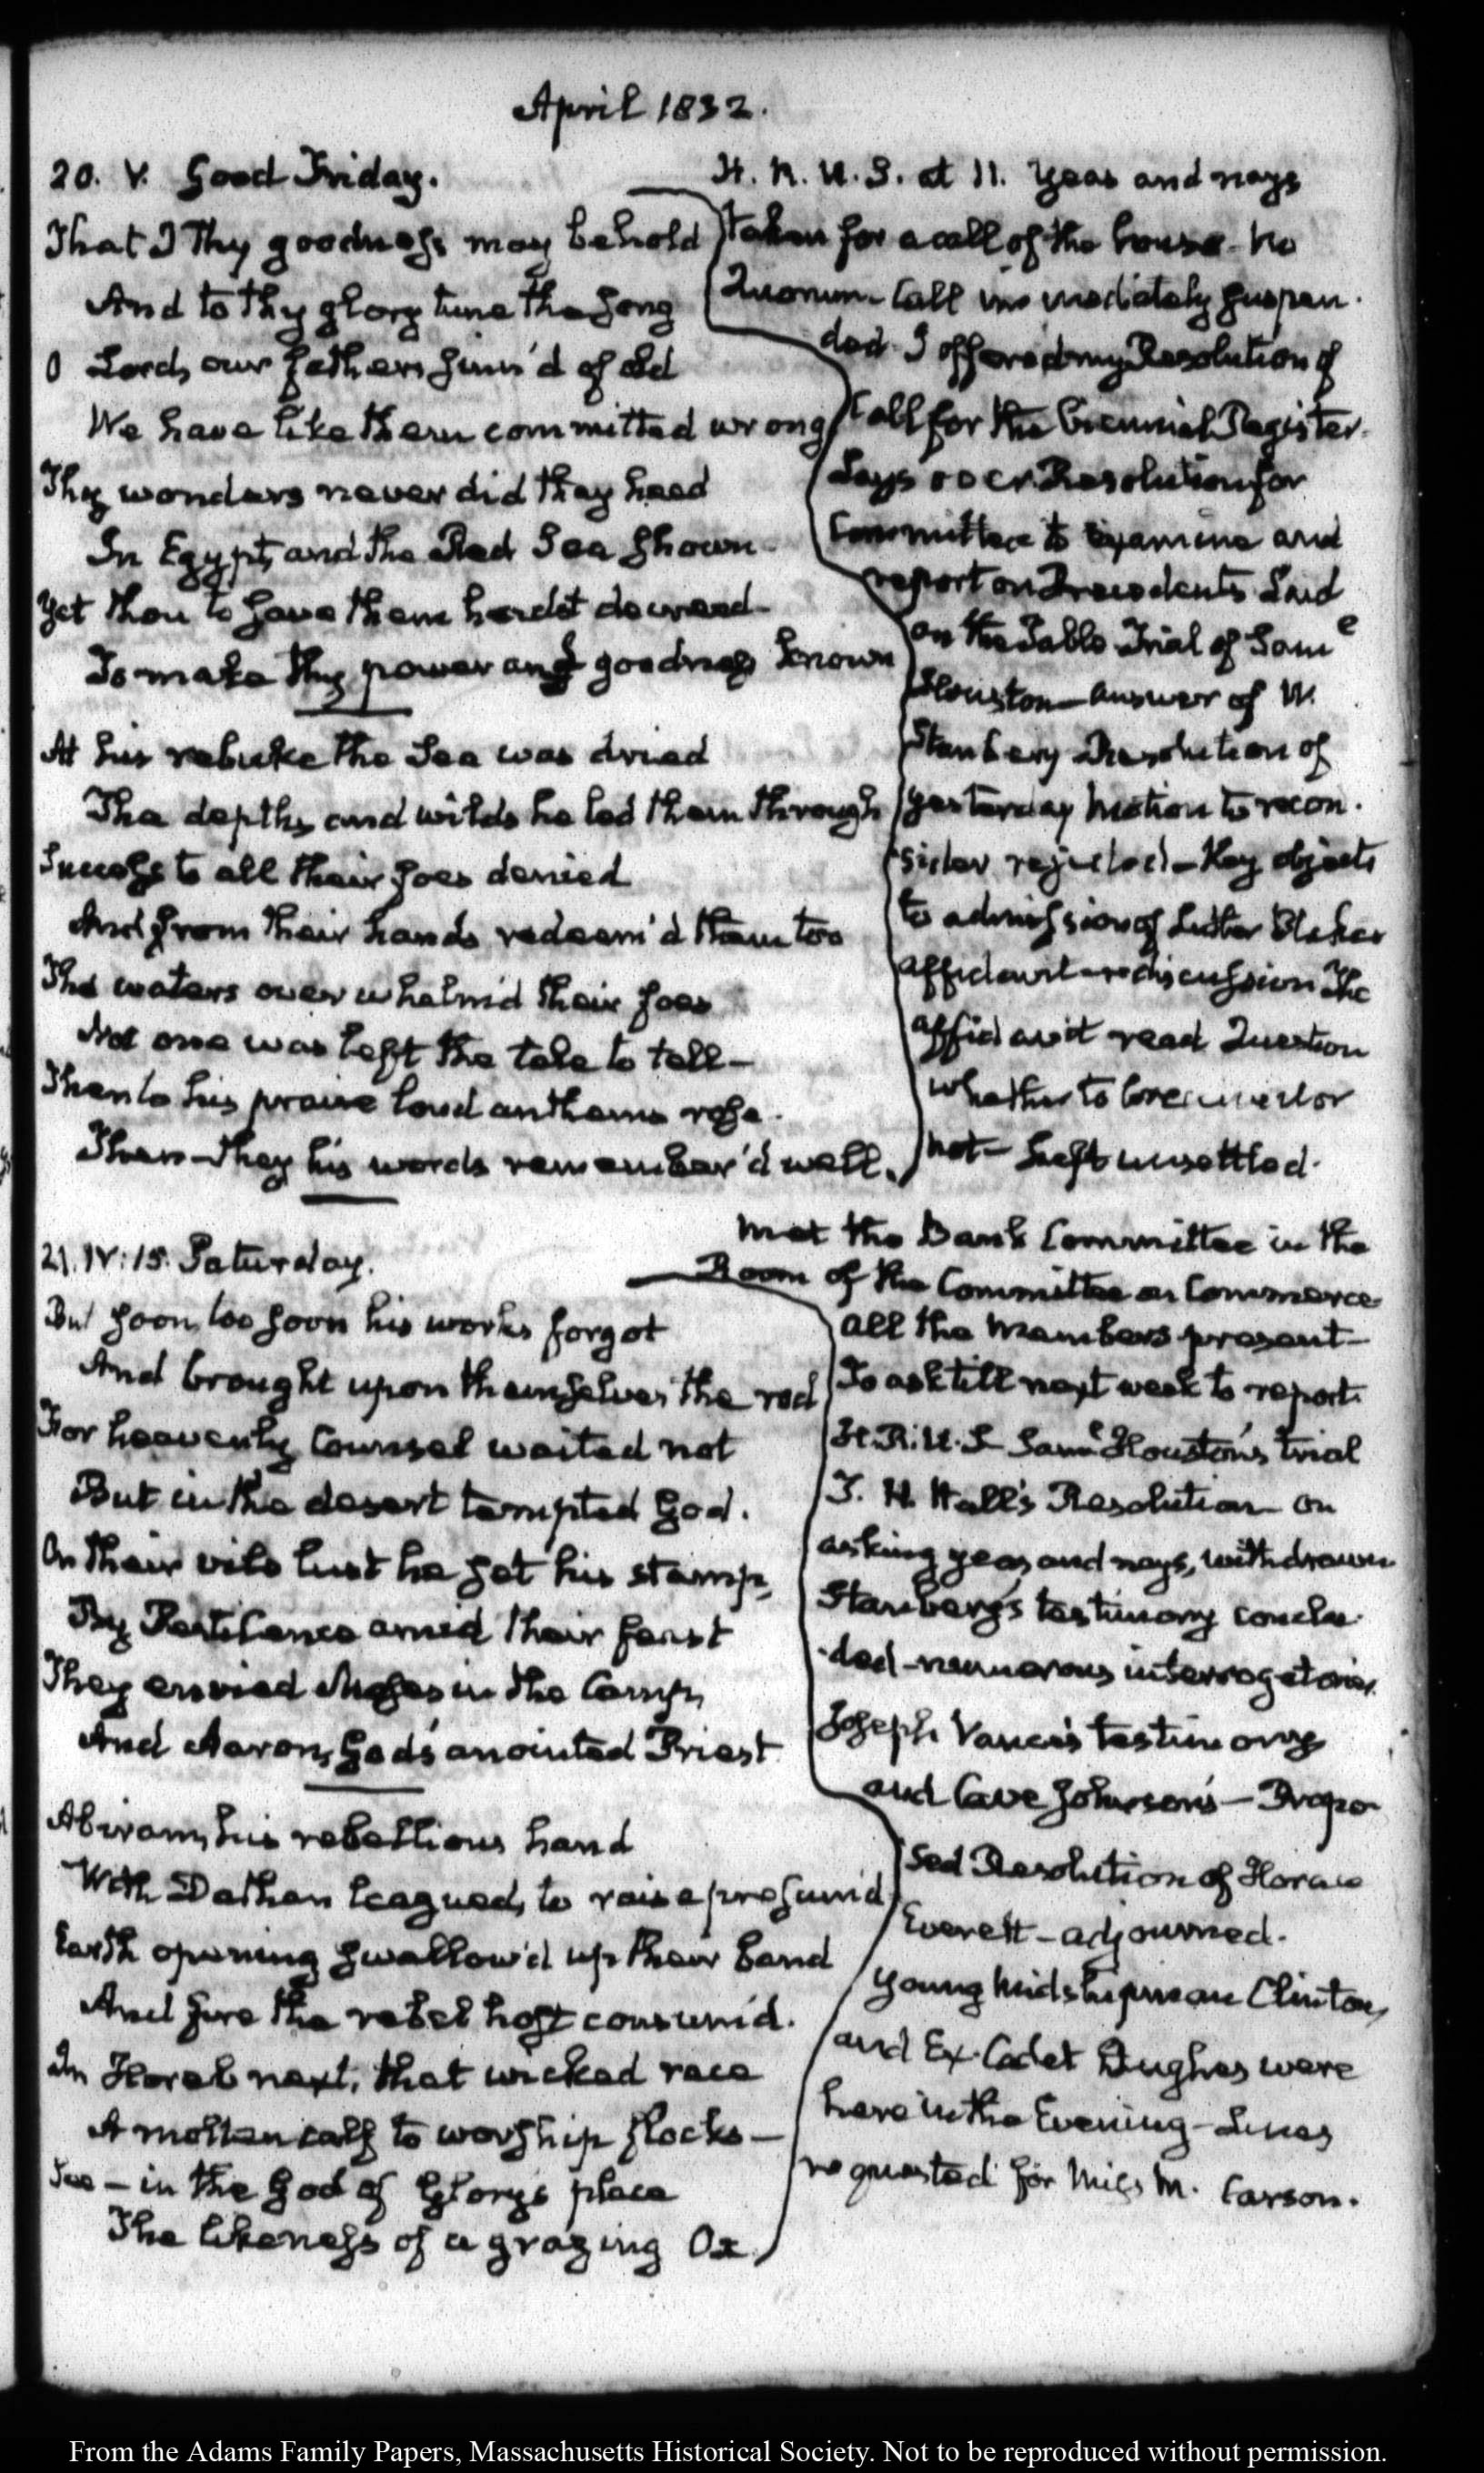 April 1832.
20. V. Good Friday.
That I Thy goodness may behold
And to thy glory tune the song
O Lord, our fathers sinn'd of old
We have like them committed wrong
Thy wonders never did they heed
In Egypt, and the Red Sea shown
Yet thou to save them hadst decreed
To make thy power and goodness known
At his rebuke the Sea was dried
The depths, and wilds he led them through
Success to all their foes denied
And from their hands redeem'd them too
The waters overwhelm'd their foes
Not one was left the tale to tell—
Then to his praise loud anthems rose.
Then—they his words remember'd well.
H. R. U. S. at 11. Yeas and nays
taken for a call of the house. No
Quorum. Call immediately suspen-
ded. I offered my Resolution of
Call for the Biennial Register.
Lays over Resolution for
Committee to Examine and
report on Precedents Laid
on the Table Trial of Saml
Houston—answer of W.
Stanbery Resolution of
yesterday Motion to recon-
sider rejected—Key objects
to admission of Luther Blake's
affidavit discussion The
affidavit read Question
whether to be received or
not—Left unsettled.
21. IV:15. Saturday.
But soon, too soon his works forgot
And brought upon themselves the rod
For heavenly Counsel waited not
But in the desert tempted God.
On their vile lust he set his stamp,
By Pestilence amid their feast
They envied Moses in the Camp,
And Aaron, God's anointed Priest
Abiram, his rebellious hand
With Dathan leagued, to raise presum'd
Earth opening swallow'd up their band
And fire the rebel host consum'd.
In Horeb next, that wicked race
A molten calf to worship flocks—
See—in the God of Glory's place
The likeness of a grazing Ox.
Met the Bank Committee in the
Room of the Committee on Commerce
all the Members present—
To ask till next week to report.
H. R. U. S Saml Houston's trial
T. H. Hall's Resolution on
asking yeas and nays, withdrawn
Stanbery's testimony conclu-
ded—numerous interrogatories.
Joseph Vance's testimony
and Cave Johnson's—Propo
sed Resolution of Horace
Everett—adjourned.
Young Midshipman Clinton,
and Ex-Cadet Hughes were
here in the Evening—Lines
requested for Miss M. Carson.
From the Adams Family Papers, Massachusetts Historical Society. Not to be reproduced without permission.